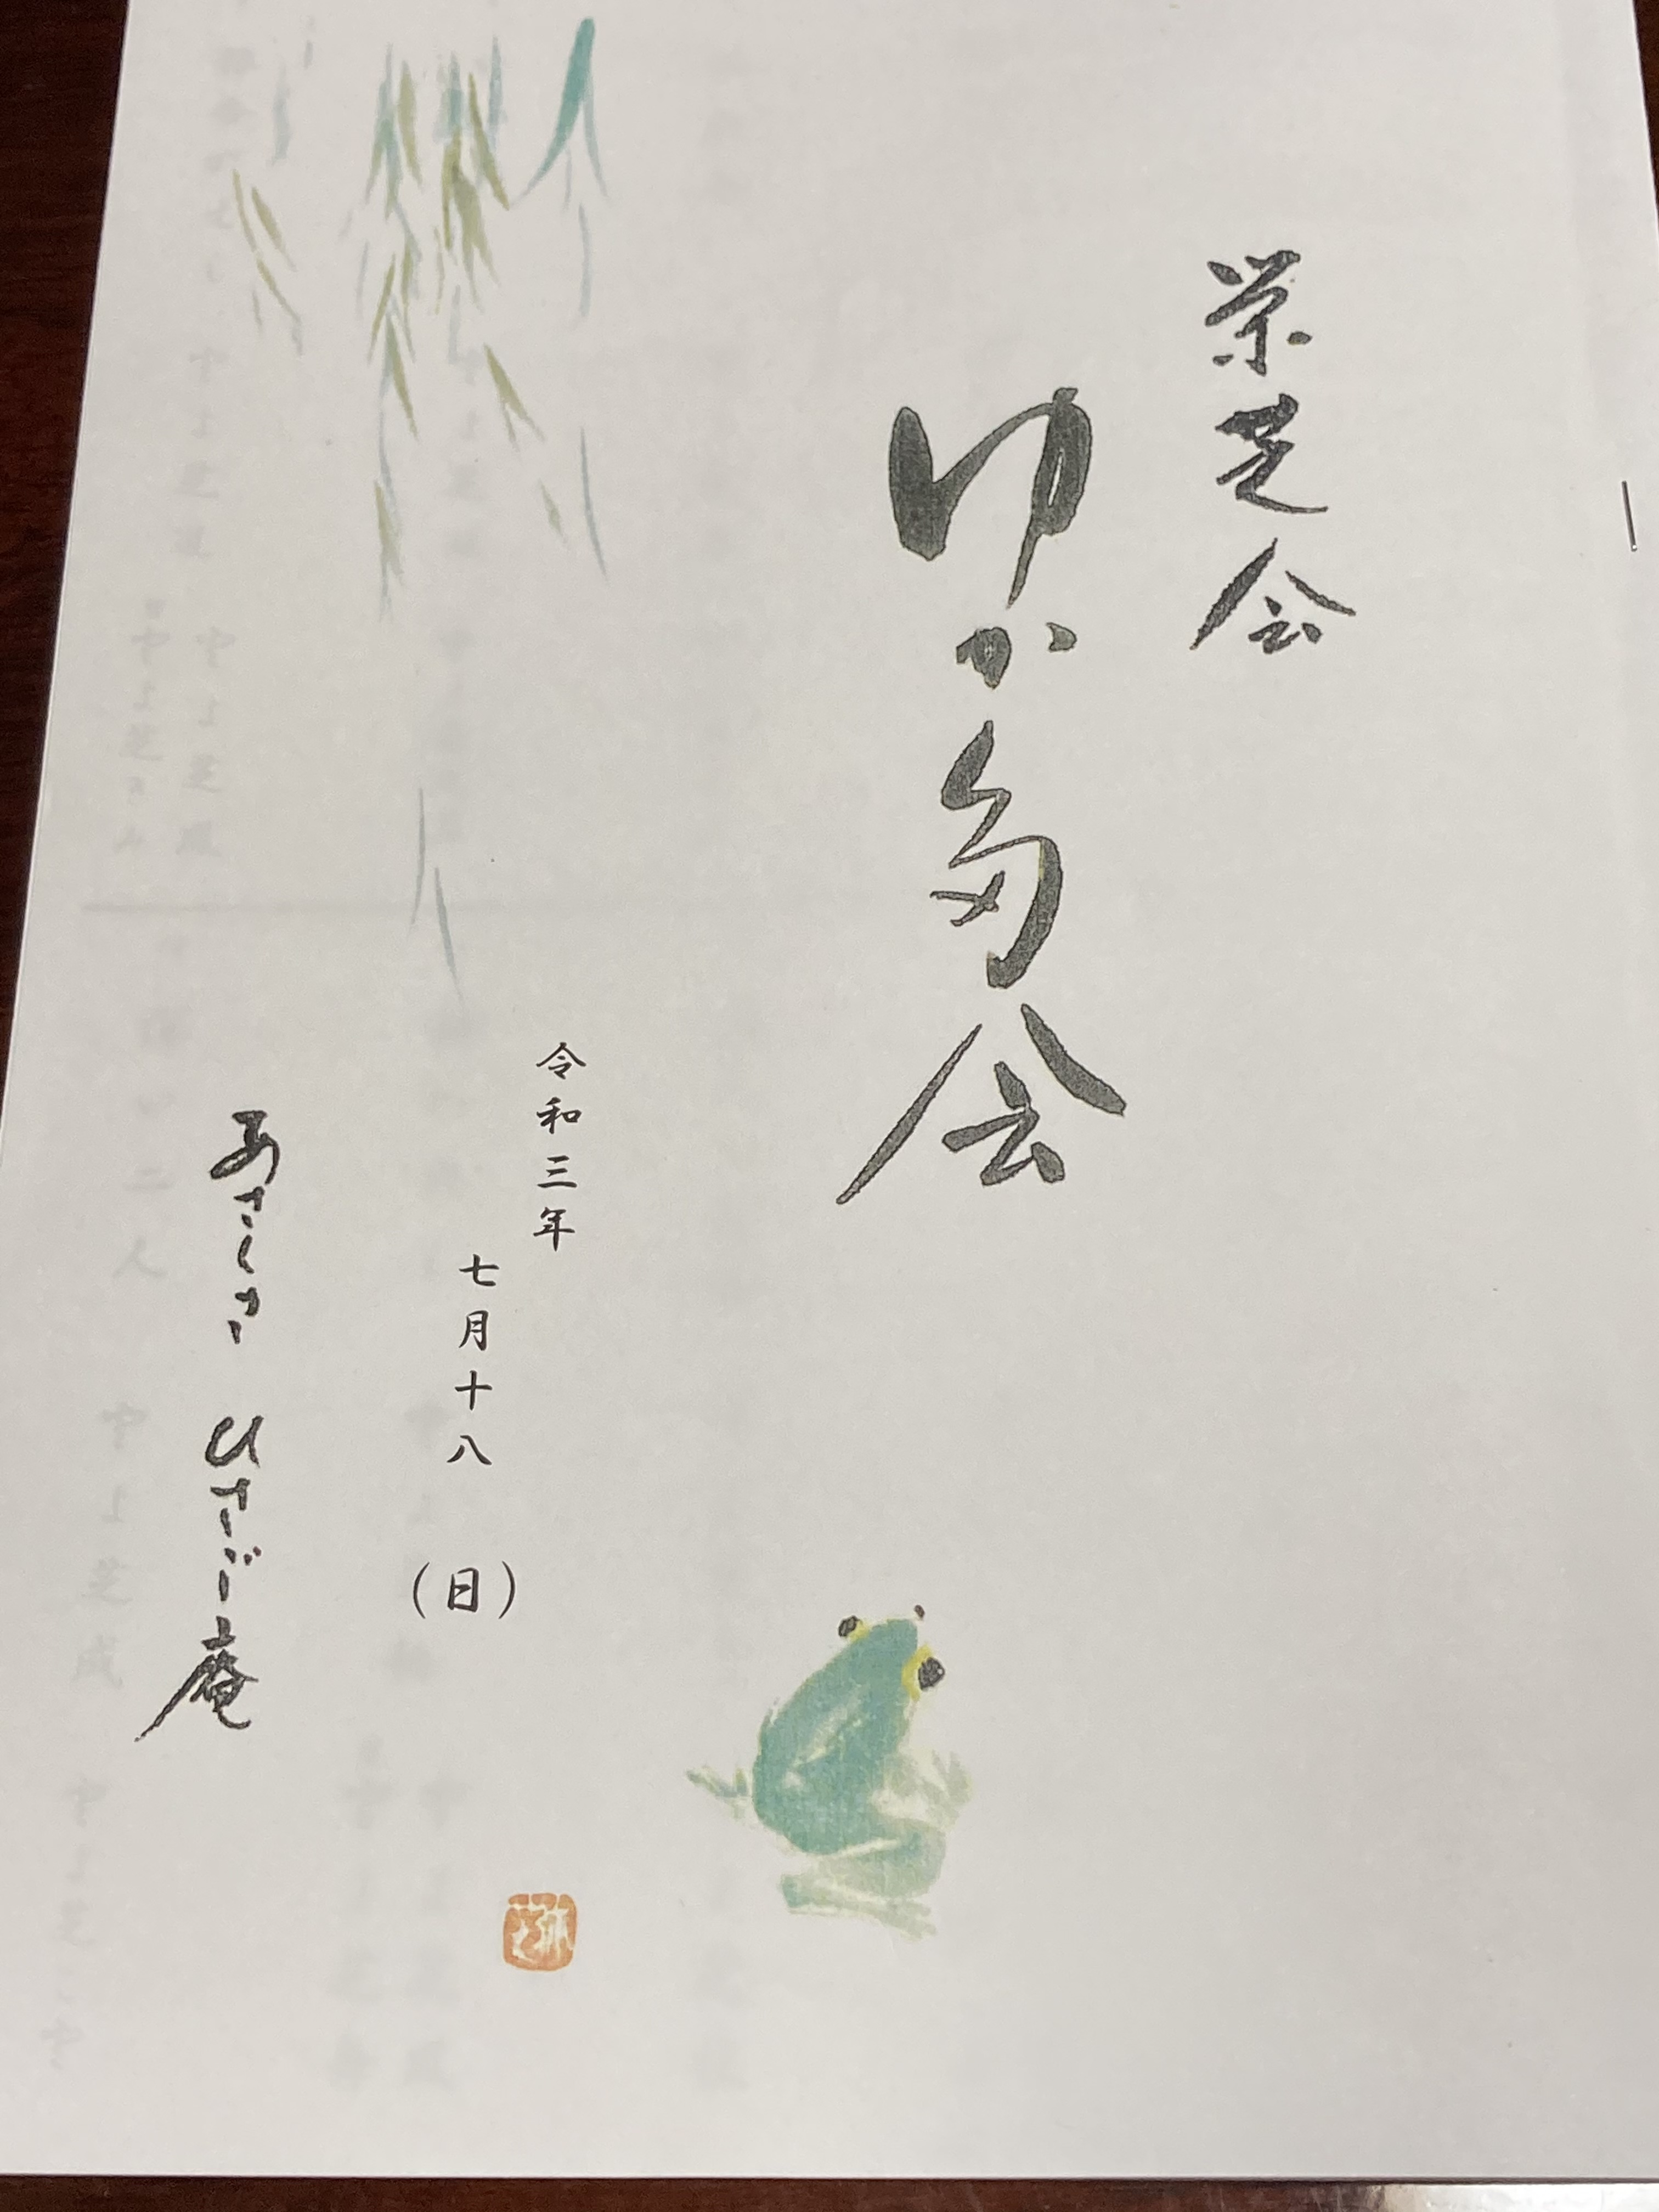 栄芝会
ゆかた会
令和三年
七月十八
（日）
あさくさ ひさご庵